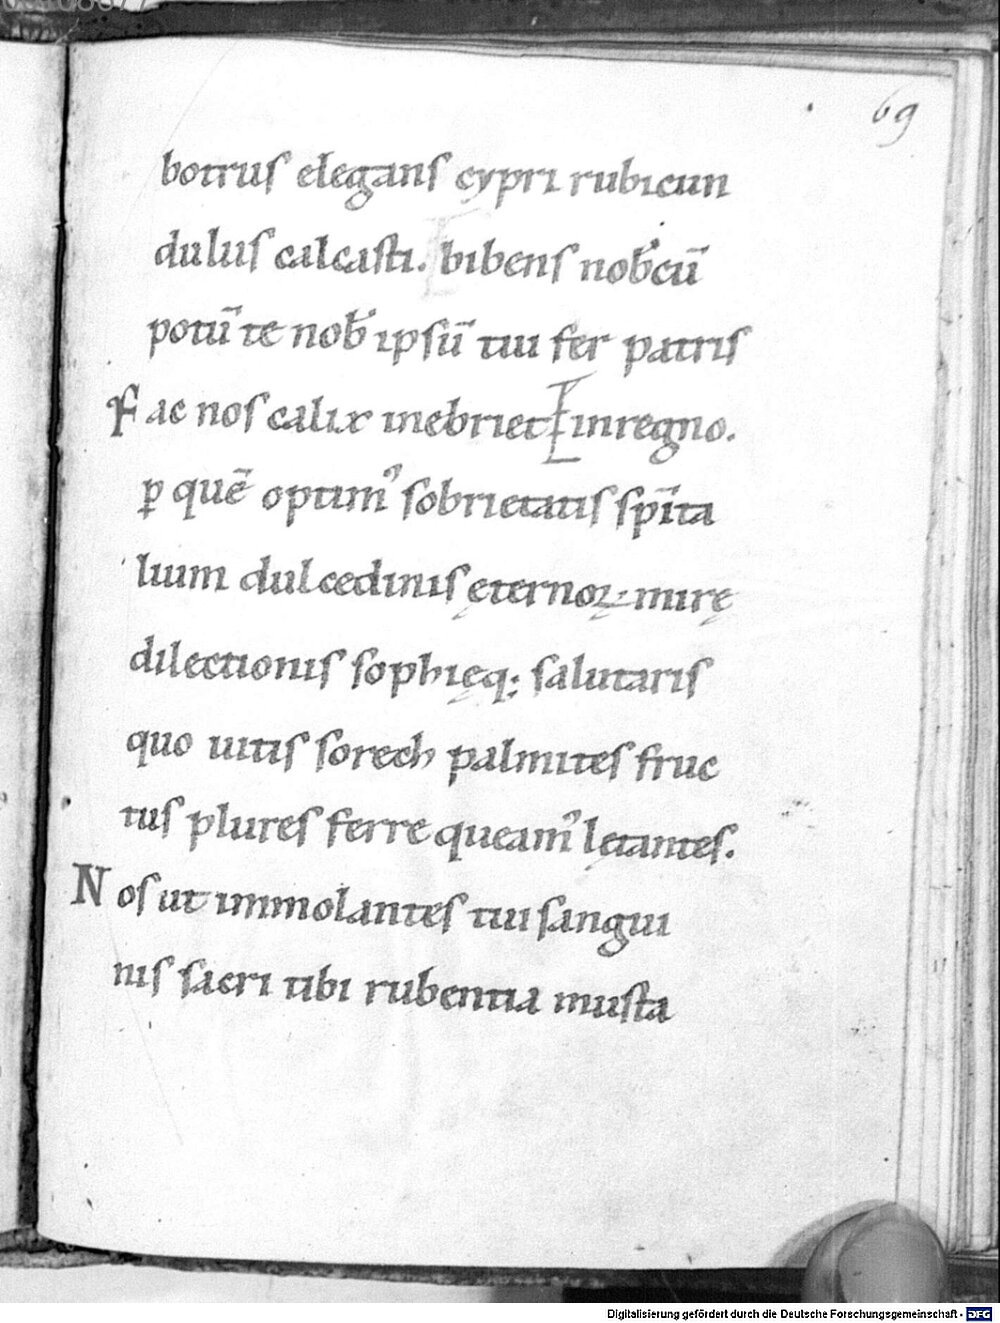 69
botrus elegans cypri rubicun
dulus calcasti. bibens nob᷒ cū
potū te nob᷒ ipsū tui fer patris
Fac nos calix inebriet in regno.
ꝑ quē optim᷒ sobrietatis sp̄ita
lium dulcedinis ęternoꝝ mirę
dilectionis sophięq; salutaris
quo uitis sorech palmites fruc
tus plures ferre queam᷒ lętantes.
Nos ut immolantes tui sangui
nis sacri tibi rubentia musta
Digitalisierung gefördert durch die Deutsche Forschungsgemeinschaft - DFG